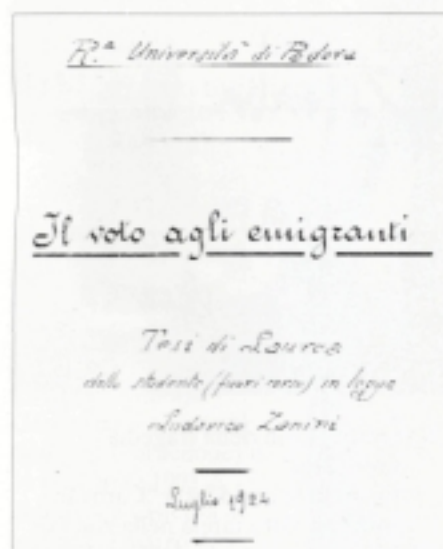 R.ª Università di Padova
Il voto agli emigranti
Tesi di Laurea
dello studente (fuori corso) in legge
Ludovico Zanini
Luglio 1924